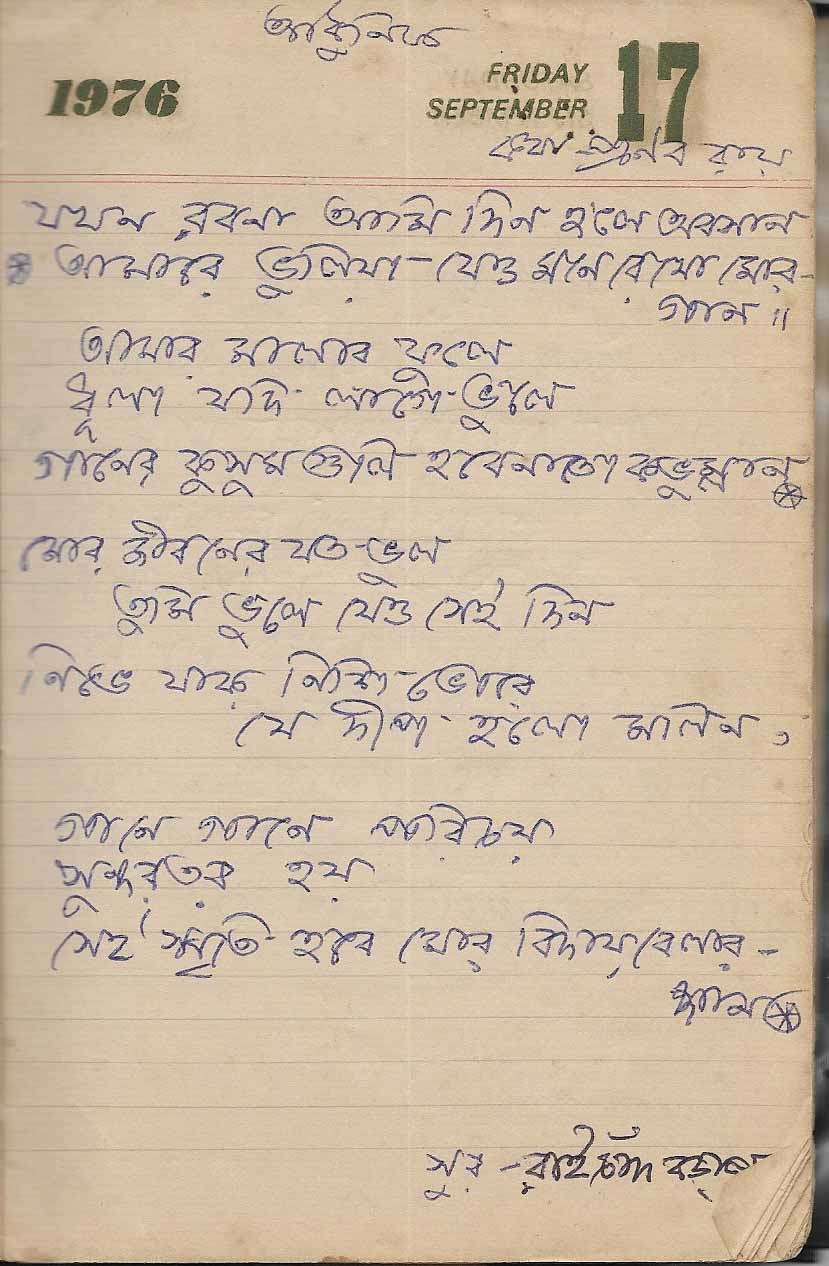 আধুনিক
1976
FRIDAY
SEPTEMBER 17
কথা - প্রণব রায়
যখন রবনা আমি দিন হলে অবসান
আমারে ভুলিয়া যেও মনে রেখো মোর -
গান ॥
আমার মালার ফুলে
ধূলা যদি লাগে ভুলে
গানের কুসুম গুলি হবেনাতো কভু ম্লান
মোর জীবনের যত ভুল
তুমি ভুলে যেও সেই দিন
নিভে যাক নিশি ভোরে
যে দীপ হলো মলিন,
গানে গানে পরিচয়
সুন্দরতর হয়
সেই স্মৃতি হবে মোর বিদায় বেলার -
দান
সুর - রাইচাঁদ বড়াল